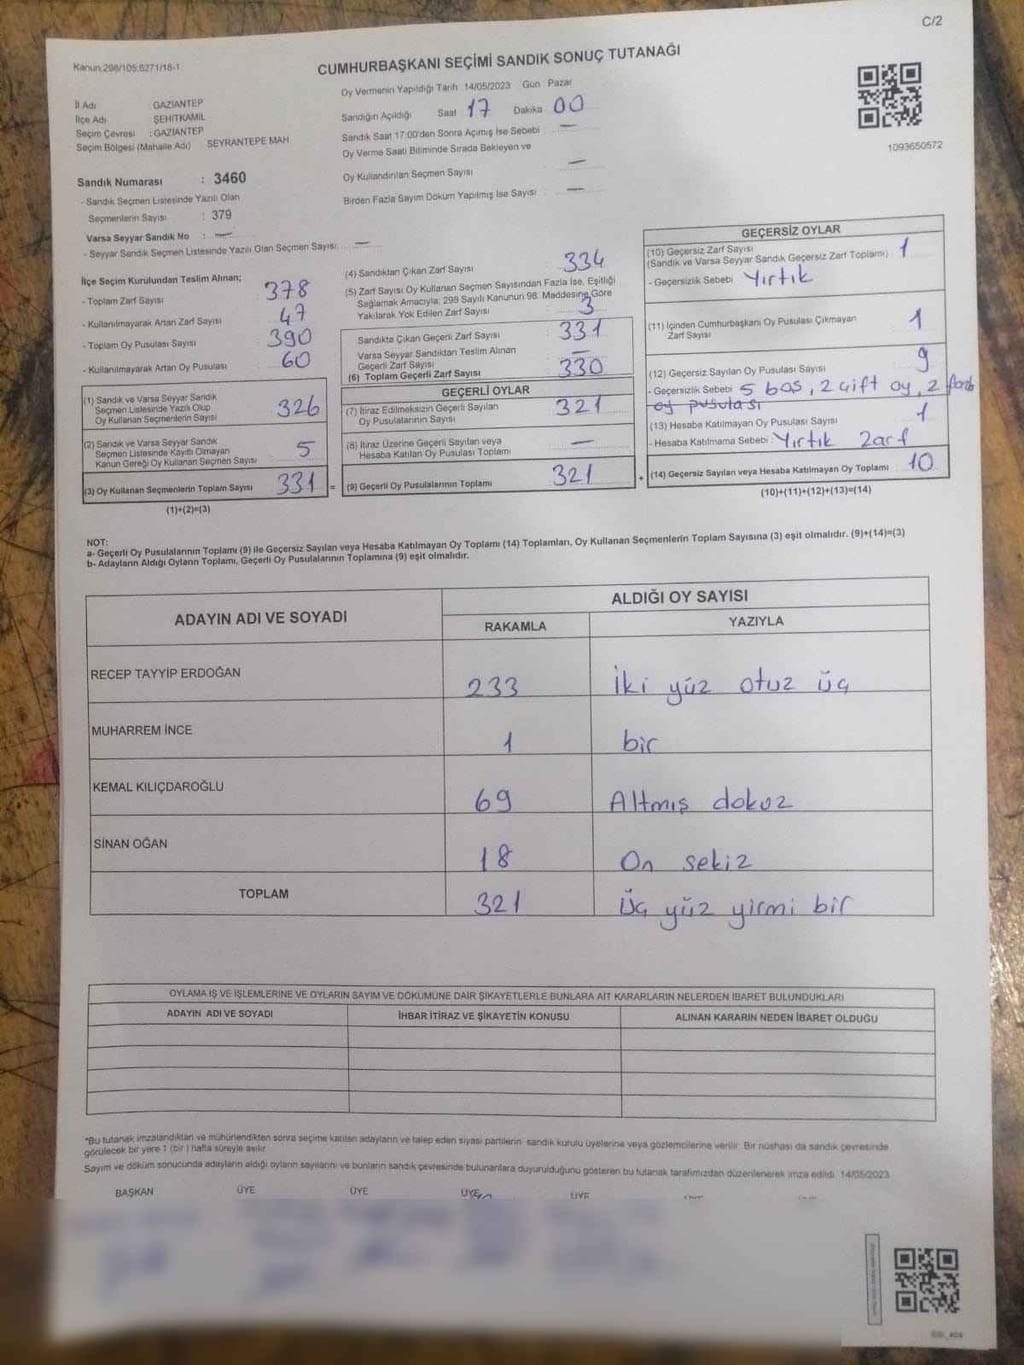 C/2
Kanun:298/105:6271/18-1
CUMHURBAŞKANI SEÇİMİ SANDIK SONUÇ TUTANAĞI
Oy Vermenin Yapıldığı Tarih 14/05/2023 Gün Pazar
İl Adı GAZİANTEP
İlçe Adı ŞEHİTKAMİL
Seçim Çevresi : GAZİANTEP
Seçim Bölgesi (Mahalle Adı) SEYRANTEPE MAH
Sandığın Açıldığı Saat 17 Dakika 00
Sandık Saat 17:00'den Sonra Açımış İse Sebebi —
Oy Verme Saati Bitiminde Sırada Bekleyen ve
Oy Kullandırılan Seçmen Sayısı —
Birden Fazla Sayım Döküm Yapılmış İse Sayısı —
1093650572
Sandık Numarası : 3460
- Sandık Seçmen Listesinde Yazılı Olan
Seçmenlerin Sayısı : 379
Varsa Seyyar Sandık No : —
- Seyyar Sandık Seçmen Listesinde Yazılı Olan Seçmen Sayısı: —
İlçe Seçim Kurulundan Teslim Alınan;
- Toplam Zarf Sayısı 378
- Kullanılmayarak Artan Zarf Sayısı 47
- Toplam Oy Pusulası Sayısı 390
- Kullanılmayarak Artan Oy Pusulası 60
(1) Sandık ve Varsa Seyyar Sandık
Seçmen Listesinde Yazılı Olup
Oy Kullanan Seçmenlerin Sayısı 326
(2) Sandık ve Varsa Seyyar Sandık
Seçmen Listesinde Kayıtlı Olmayan
Kanun Gereği Oy Kullanan Seçmen Sayısı 5
(3) Oy Kullanan Seçmenlerin Toplam Sayısı 331 =
(1)+(2)=(3)
(4) Sandıktan Çıkan Zarf Sayısı 334
(5) Zarf Sayısı Oy Kullanan Seçmen Sayısından Fazla İse, Eşitliği
Sağlamak Amacıyla; 298 Sayılı Kanunun 98. Maddesine Göre
Yakılarak Yok Edilen Zarf Sayısı 3
Sandıkta Çıkan Geçerli Zarf Sayısı 331
Varsa Seyyar Sandıktan Teslim Alınan
Geçerli Zarf Sayısı —
(6) Toplam Geçerli Zarf Sayısı 330
GEÇERLİ OYLAR
(7) İtiraz Edilmeksizin Geçerli Sayılan
Oy Pusulalarının Sayısı 321
(8) İtiraz Üzerine Geçerli Sayılan veya
Hesaba Katılan Oy Pusulası Toplamı —
(9) Geçerli Oy Pusulalarının Toplamı 321 +
GEÇERSİZ OYLAR
(10) Geçersiz Zarf Sayısı
(Sandık ve Varsa Seyyar Sandık Geçersiz Zarf Toplamı) 1
- Geçersizlik Sebebi Yırtık
(11) İçinden Cumhurbaşkanı Oy Pusulası Çıkmayan
Zarf Sayısı 1
(12) Geçersiz Sayılan Oy Pusulası Sayısı 9
- Geçersizlik Sebebi 5 boş, 2 çift oy, 2 farklı
oy pusulası
(13) Hesaba Katılmayan Oy Pusulası Sayısı 1
- Hesaba Katılmama Sebebi Yırtık Zarf
(14) Geçersiz Sayılan veya Hesaba Katılmayan Oy Toplamı 10
(10)+(11)+(12)+(13)=(14)
NOT:
a- Geçerli Oy Pusulalarının Toplamı (9) ile Geçersiz Sayılan veya Hesaba Katılmayan Oy Toplamı (14) Toplamları, Oy Kullanan Seçmenlerin Toplam Sayısına (3) eşit olmalıdır. (9)+(14)=(3)
b- Adayların Aldığı Oyların Toplamı, Geçerli Oy Pusulalarının Toplamına (9) eşit olmalıdır.
ADAYIN ADI VE SOYADI
ALDIĞI OY SAYISI
RAKAMLA YAZIYLA
RECEP TAYYİP ERDOĞAN 233 İki yüz otuz üç
MUHARREM İNCE 1 bir
KEMAL KILIÇDAROĞLU 69 Altmış dokuz
SİNAN OĞAN 18 On sekiz
TOPLAM 321 üç yüz yirmi bir
OYLAMA İŞ VE İŞLEMLERİNE VE OYLARIN SAYIM VE DÖKÜMÜNE DAİR ŞİKAYETLERLE BUNLARA AİT KARARLARIN NELERDEN İBARET BULUNDUKLARI
ADAYIN ADI VE SOYADI İHBAR İTİRAZ VE ŞİKAYETİN KONUSU ALINAN KARARIN NEDEN İBARET OLDUĞU
*Bu tutanak imzalandıktan ve mühürlendikten sonra seçime katılan adayların ve talep eden siyasi partilerin sandık kurulu üyelerine veya gözlemcilerine verilir. Bir nüshası da sandık çevresinde
görülecek bir yere 1 (bir) hafta süreyle asılır.
Sayım ve döküm sonucunda adayların aldığı oyların sayılarını ve bunların sandık çevresinde bulunanlara duyurulduğunu gösteren bu tutanak tarafımızdan düzenlenerek imza edildi. 14/05/2023
BAŞKAN ÜYE ÜYE ÜYE ÜYE